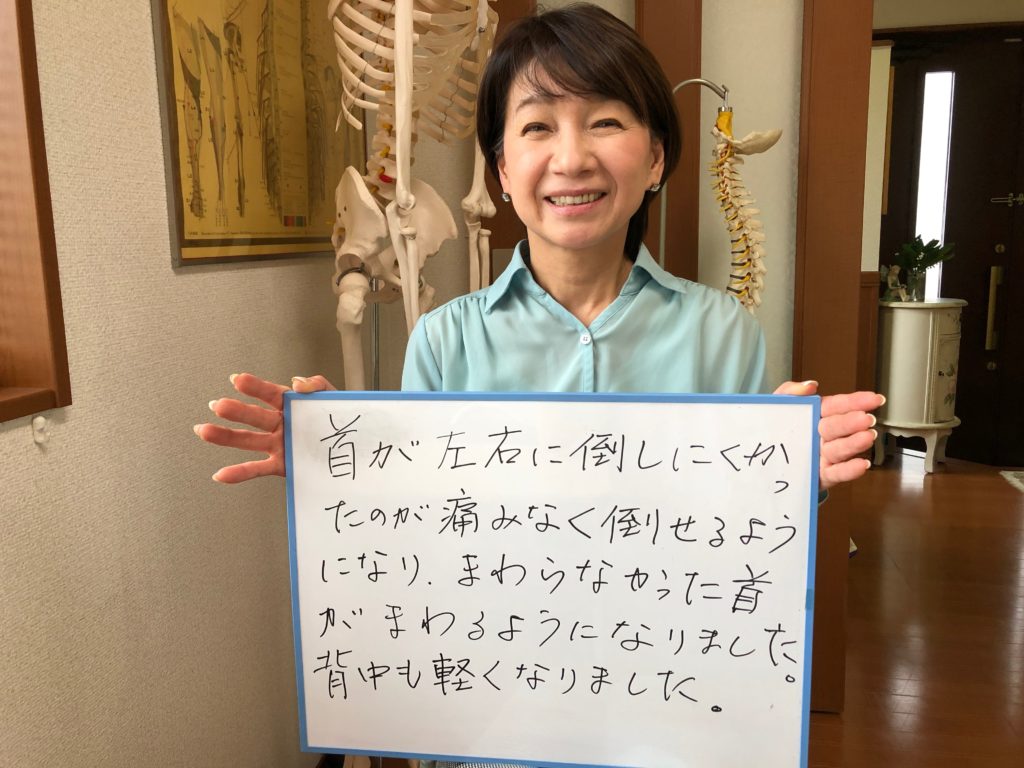 首が左右に倒しにくかっ
たのが痛みなく倒せるよう
になり、まわらなかった首
がまわるようになりました。
背中も軽くなりました。